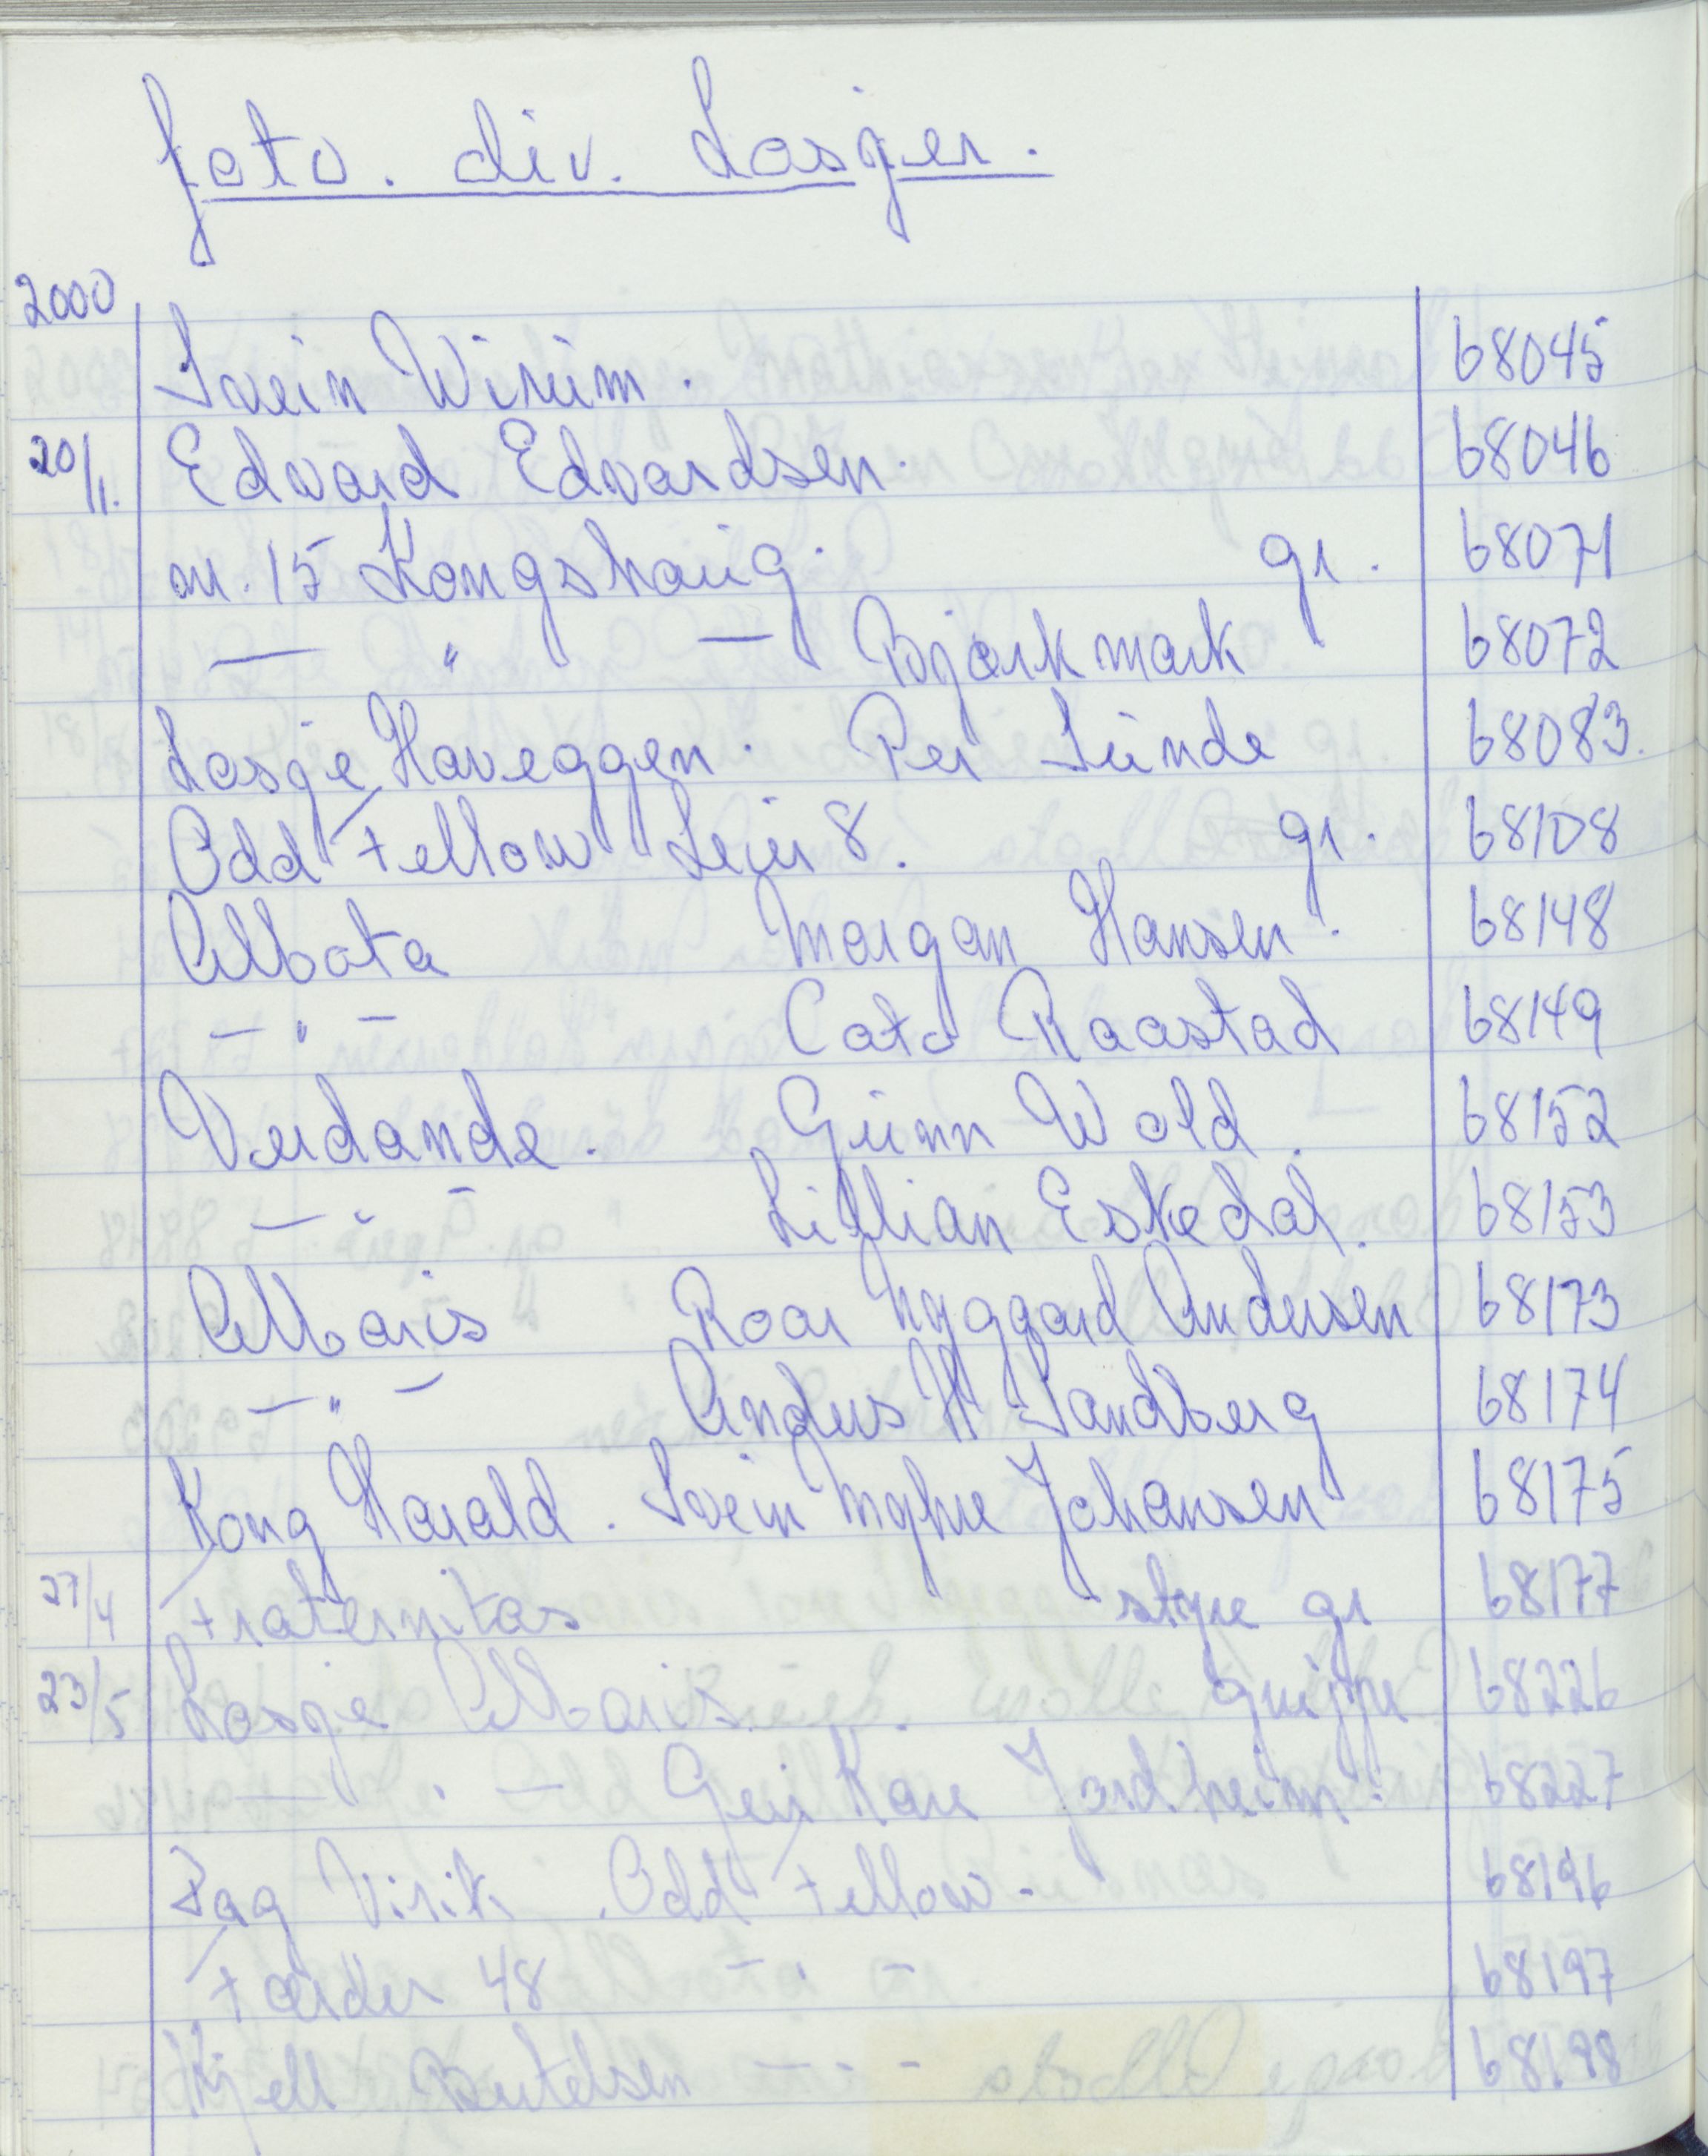 foto. div. Losjer.
2000
Svein Wirum. 68045
20/1. Edvard Edvardsen. 68046
nr. 15 Kongshaug. gr. 68071
— " — Bjørkmark 68072
Losje Haveggen. Per Sunde 68083.
Odd Fellow Leir 8. gr. 68108
Albata Morgan Hansen. 68148
— " — Cato Raastad 68149
Verdande. Gunn Wold. 68152
— " — Lillian Eskedal. 68153
Albaris Roar Nyggard Andersen 68173
— " — Anders H Sandberg 68174
Kong Harald. Svein Myhre Johansen 68175
27/4 Fraternitas styre gr 68177
23/5 Losje Albaris. gruppe 68226
— " — Geir Kare Jordheim. 68227
Dag Virik. Odd Fellow. 68196
Færder 48 — " — 68197
Kjell Bertelsen — " — 68198